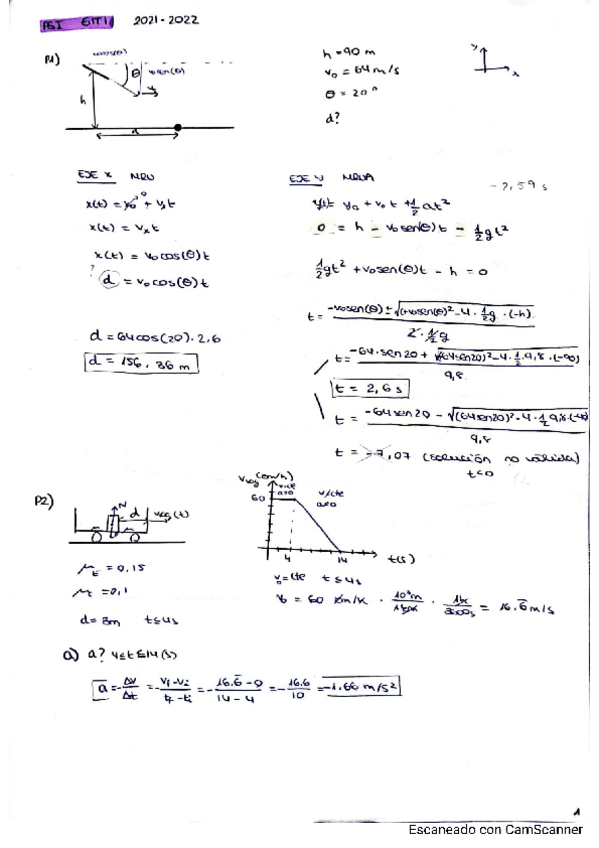 PEI GITI 2021-2022
P1)
θ
v₀sen(θ)
h
d
h = 90 m
v₀ = 64 m/s
θ = 20°
d?
y
x
EJE X MRU
x(t) = x₀ + vₓt
x(t) = vₓt
x(t) = v₀cos(θ)t
? d = v₀cos(θ)t
d = 64cos(20)·2,6
d = 156,36 m
EJE Y MRUA
y(t) = y₀ + v₀t + 1/2 at²
0 = h - v₀sen(θ)t - 1/2 gt²
1/2 gt² + v₀sen(θ)t - h = 0
t = -v₀sen(θ) ± √((+v₀sen(θ))² - 4·1/2 g·(-h)) / 2·1/2 g
t = -64·sen20 + √((64sen20)² - 4·1/2·9,8·(-90)) / 9,8
t = 2,6 s
t = -64sen20 - √((64sen20)² - 4·1/2 9,8·(-90)) / 9,8
t = -7,07 (solución no válida)
t<0
P2)
N
d
v(t)
μE = 0,15
μc = 0,1
d = 3m t≤4s
(km/h)
60
v=cte
a=0
4
14
t(s)
v₀=cte t≤4s
v₀ = 60 km/h · 10³m/1km · 1h/3600s = 16.6 m/s
a) a? 4≤t≤14 (s)
a = Δv/Δt = vf-vi/tf-ti = -16.6-0/14-4 = -16.6/10 = -1.66 m/s²
1
Escaneado con CamScanner